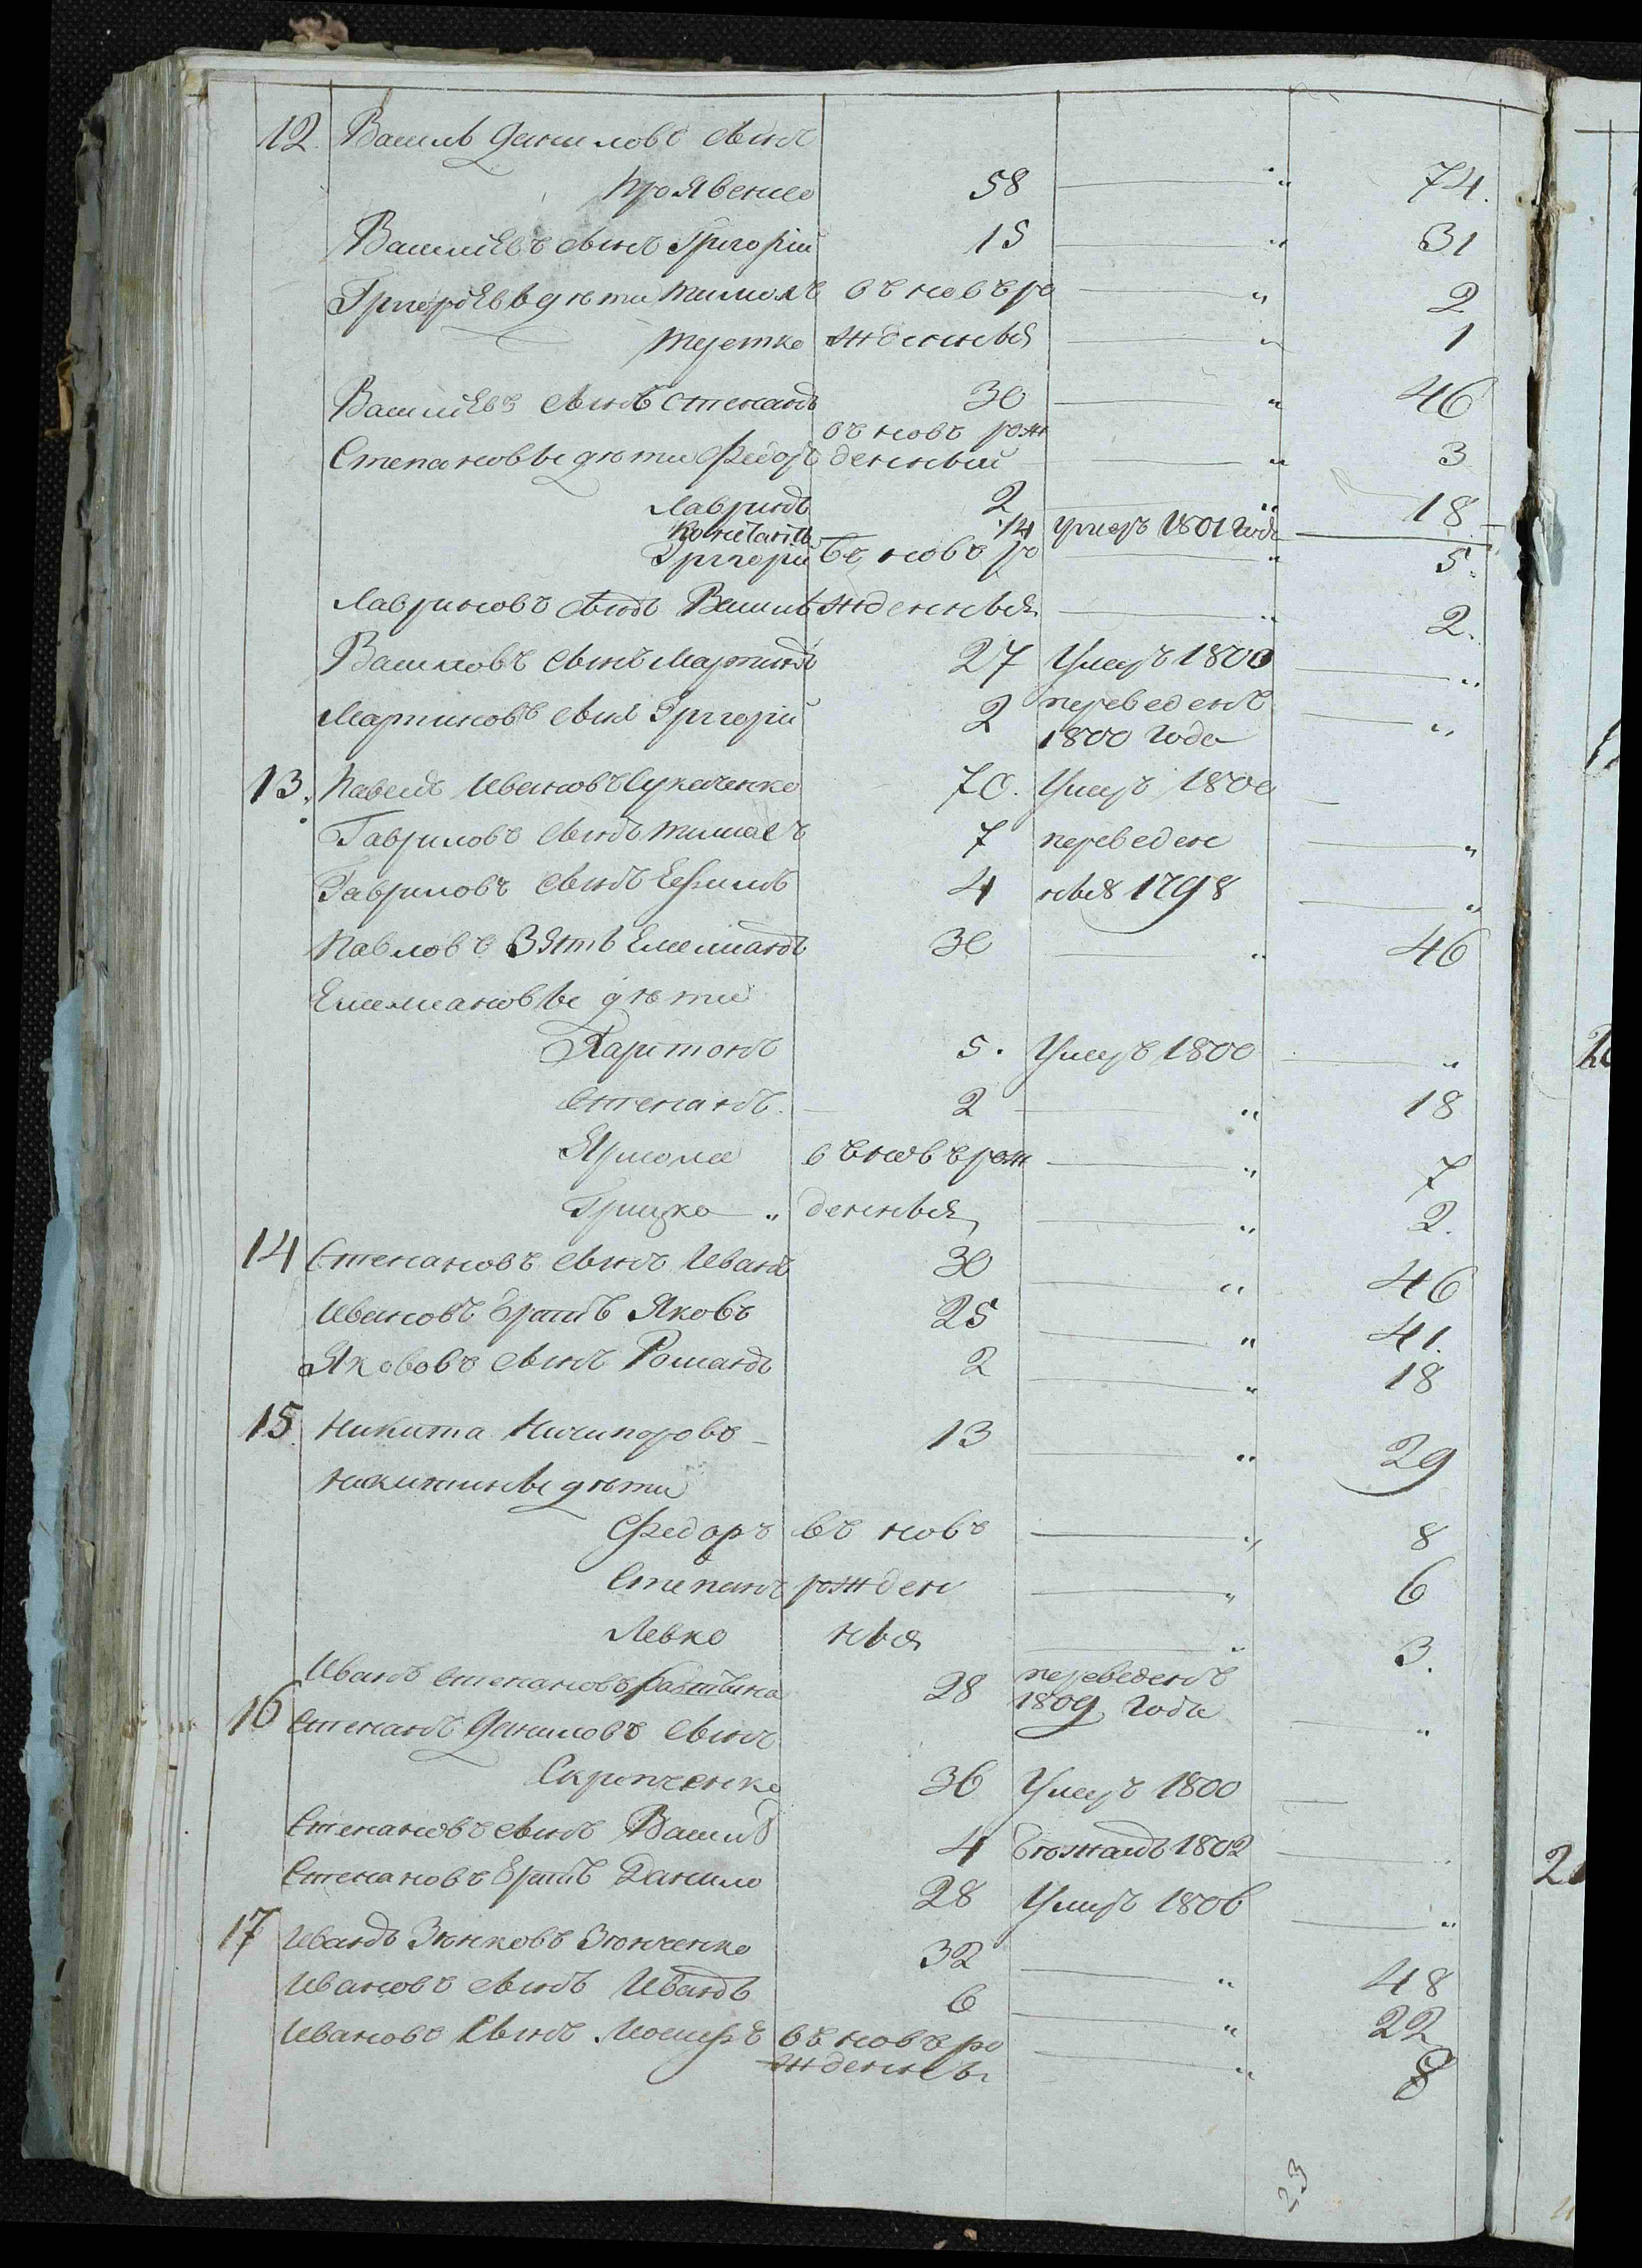 12. Василь Даниловъ сынъ
Проявенко 58 — " 74.
Василіевъ сынъ Григорій 15 — " 31
Григоріевы дѣти Тимошъ въ новъ ро — " 2
Терешко жденныя — " 1
Василіевъ сынъ Степанъ 30 — " 46
въ новъ рож
Степановы дѣти Федоръ денный — " 3
Лавринъ 2 — " 18
14 умеръ 1801 Года —
Григорій въ новъ ро — " 5.
Лавриновъ сынъ Василь жденныя — " 2.
Васильовъ сынъ Мартинъ 27 Умеръ 1800 — "
Мартиновъ сынъ Григорій 2 переведенъ
1800 Года — "
13. Павелъ Ивановъ 70. Умеръ 1800 —
Гавриловъ сынъ Тимошъ 7 переведен — "
Гавриловъ сынъ Ефимъ 4 ныя 1798 — "
Павловъ Зять Емелианъ 30 — " 46
Емелиановы дѣти
Харитонъ 5. Умеръ 1800 — "
Степанъ. — 2 — " 18
Ярмола въ новъ рож — " 7
Грицко — " денныя — " 2.
14 Степановъ сынъ Иванъ 30 — " 46
Ивановъ братъ Яковъ 25 — " 41.
Якововъ сынъ Романъ 2 — " 18
15. Никита Ничипоровъ — 13 — " 29
Никитины дѣти
Федоръ въ новъ — " 8
Степанъ рожден — " 6
Левко ныя — " 3.
Иванъ Степановъ 28 переведенъ
1809 Года — "
16 Степанъ Даниловъ сынъ
Скрипченко 36 Умеръ 1800 —
Степановъ сынъ Василь 4 бѣжалъ 1802 —
Степановъ братъ Данило 28 Умеръ 1806 — "
17 Иванъ Зѣнковъ Зѣнченко 32 — " 48
Ивановъ сынъ Иванъ 6 — " 22
Ивановъ сынъ Иосифъ въ новъ ро
жденны — " 8
23